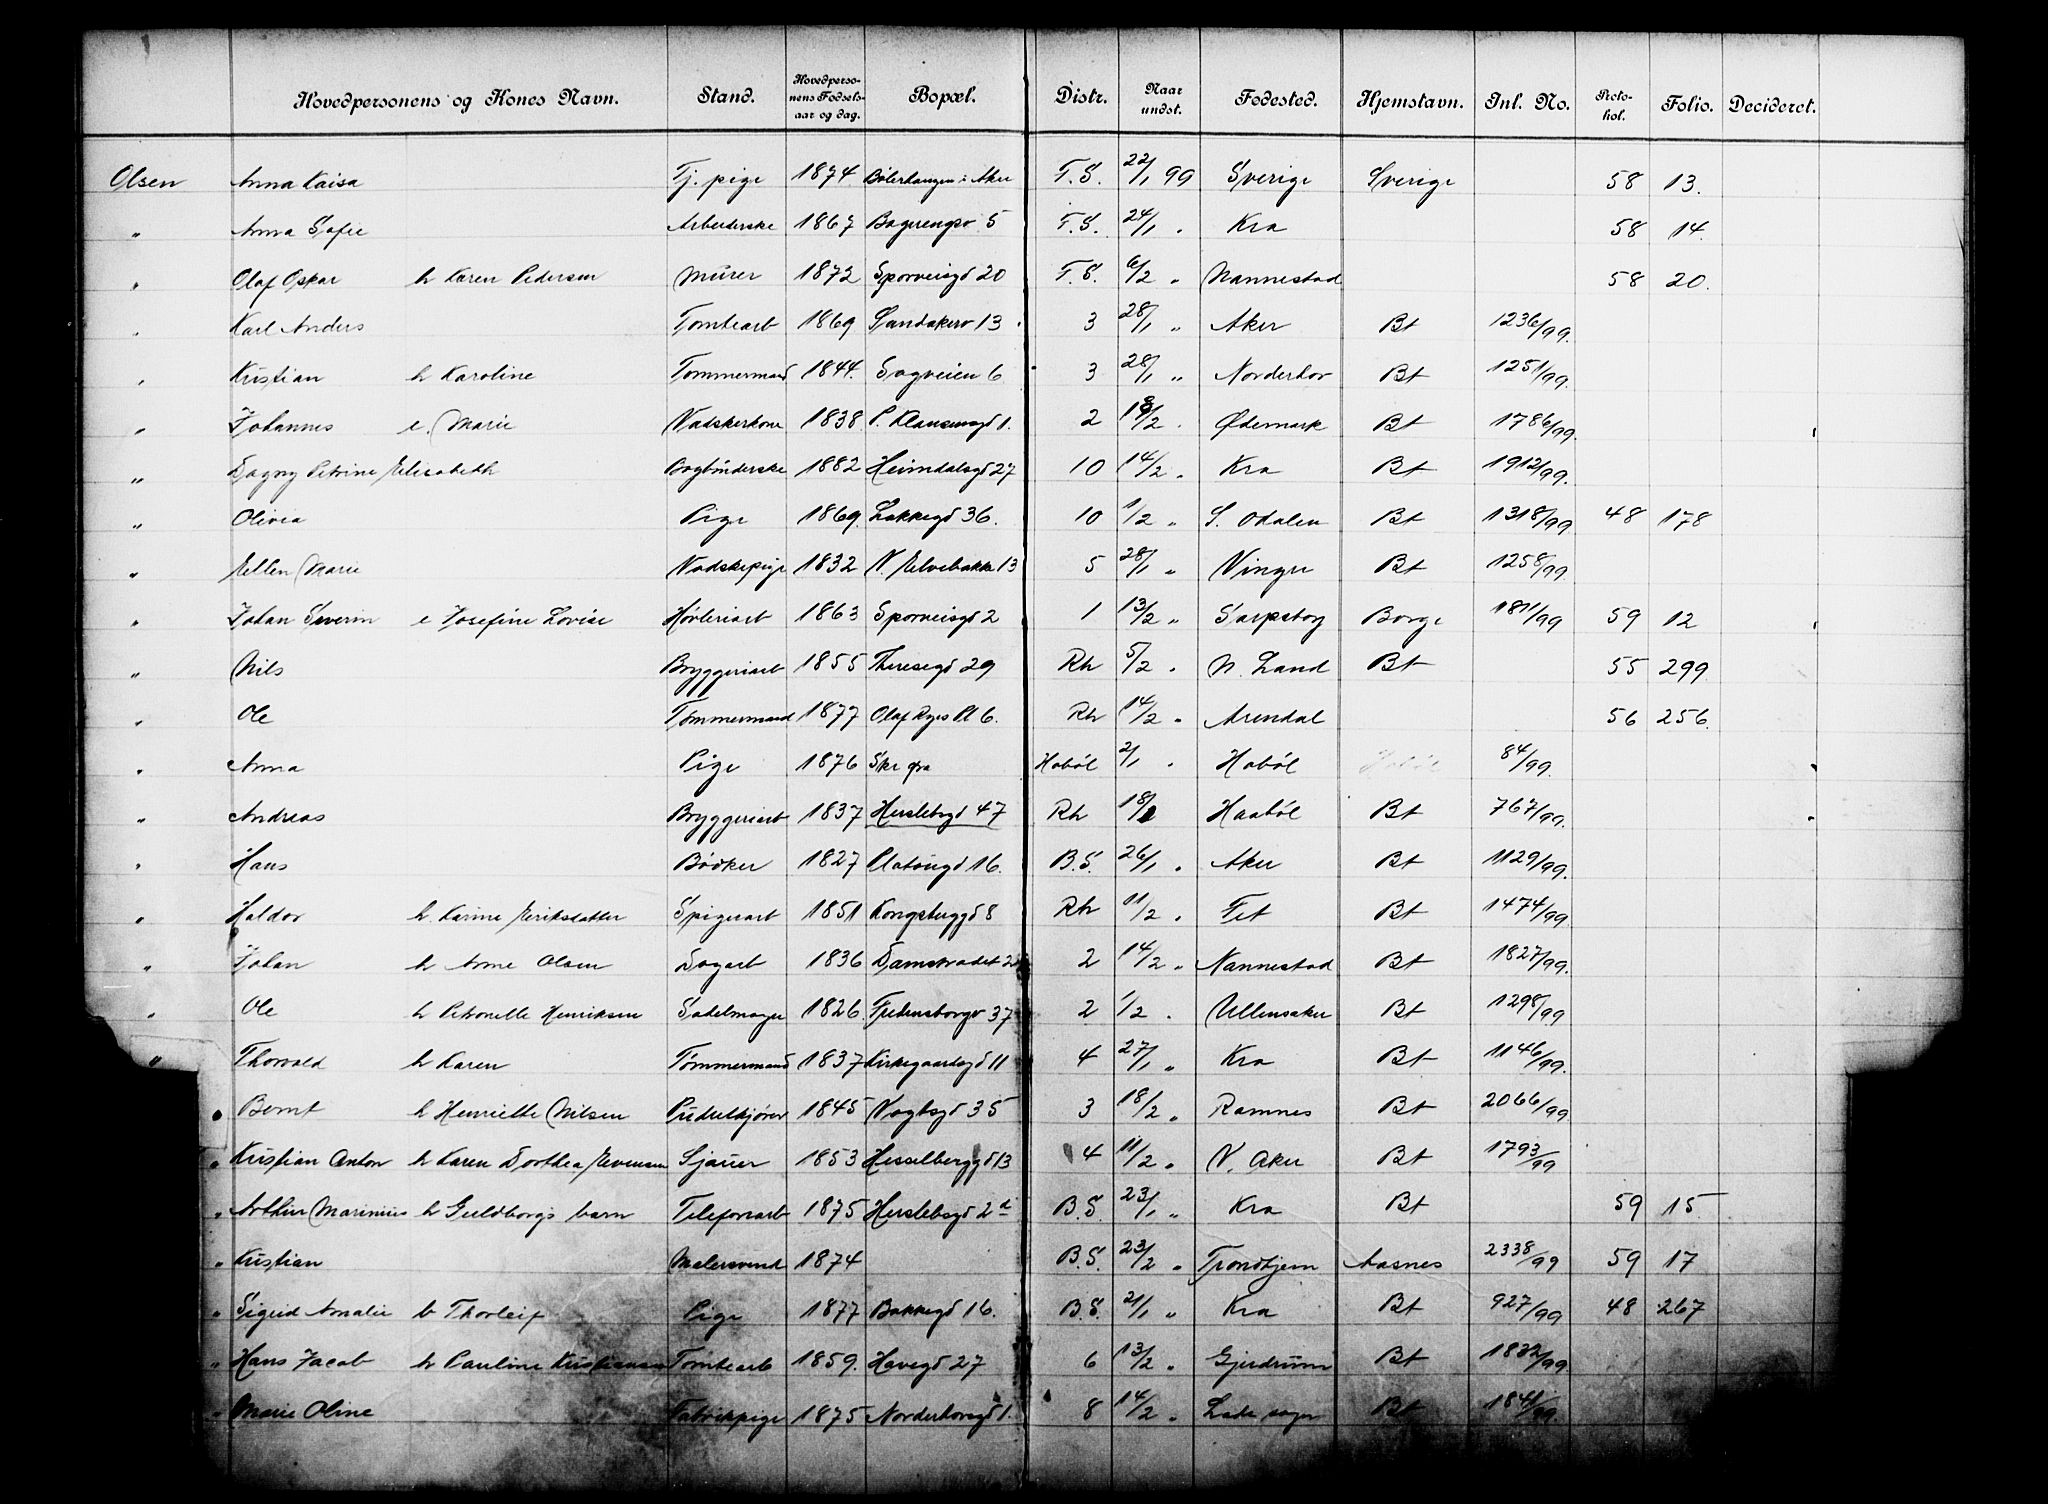 Hovedpersonens og Kones Navn. Stand. Hovedpersonens Fødselsaar og dag. Bopæl. Distr. Naar undst. Fødested. Hjemstavn. Inl. No. Protokol. Folio. Decideret.
Olsen Anna Kaisa Tj. pige 1874 Bölerhaugen i Aker F.S. 22/1 99 Sverige Sverige 58 13.
" Anna Sofie Arbeiderske 1867 5 F.S. 24/1 " Kra 58 14.
" Olaf Oskar h Karen Pedersen Murer 1872 Sporveisgd 20 F.S. 6/2 " Nannestad 58 20.
" Karl Anders Tomtearb 1869 Sandakerv 13 3 28/1 " Aker Bt 1236/99.
" Kristian h Karoline Tømmermand 1844. Sagveien 6 3 28/1 " Norderhov Bt 1251/99.
" Johannes e. Marie Vadskerkone 1838 P. Klausensgd 1. 2 /2 " Ødemark Bt 1786/99.
" Dagny Petrine Elisabeth Bogbinderske 1882 Heimdalsgd 27 10 14/2 " Kra Bt 1912/99.
" Olivia Pige 1869. Lakkegd 36. 10 1/2 " S. Odalen Bt 1318/99 48 178
" Ellen Marie Vadskepige 1832 N. Elvebakke 13 5 28/1 " Vinger Bt 1258/99
" Johan Severin e Josefine Lovise Høvleriarb 1863 Sporveisgd 2 1 13/2 " Sarpsborg Borge 1811/99 59 12
" Nils Bryggeriarb 1855 Theresegd 29 Rh 5/2 " N. Land Bt 55 299.
" Ole Tømmermand 1877 Olaf Ryes Pl 6. Rh 14/2 " Arendal 56 256.
" Anna Pige 1876 Ske Haböl 2/1 " Haböl Haböl 84/99.
" Andreas Bryggeriarb 1837 Herslebsgd 47 Rh 18/1 Haaböl Bt 767/99.
" Hans Bödker 1827 Platougd 16. B.S. 26/1 " Aker Bt 1129/99.
" Haldor h. Karine Eriksdatter Spigerarb 1851 Kongsberggd 8 Rh 11/2 " Fet Bt 1474/99.
" Johan h Anne Olsen Dagarb 1836 Damstradet 2 2 14/2 " Nannestad Bt 1827/99.
" Ole h Petronelle Henriksen Sadelmager 1826 Fredensborgv 37 2 1/2 " Ullensaker Bt 1298/99
" Thorvald h Karen Tømmermand 1837 Kirkegaardsgd 11 4 27/1 " Kra Bt 1146/99.
" Bernt h Henriette Nilsen 1845 Vogtsgd 35 3 18/2 " Ramnes Bt 2066/99
" Kristian Anton h Karen Dorthea Evensen Sjauer 1853 Hesselberggd 13 4 11/2 " V. Aker Bt 1793/99
" Arthur Marinius h Guldborgs barn Telefonarb 1875 Herslebsgd 2 d B.S. 23/1 " Kra Bt 59 15
" Kristian Malersvend 1874 B.S. 23/2 " Trondhjem Aasnes 2338/99 59 17
" Sigrid Amalie b Thorleif Pige 1877 Bakkegd 16. B.S. 21/1 " Kra Bt 927/99 48 267
" Hans Jacob h Pauline Kristiansen Tomtearb 1859. Havegd 27 6 13/2 " Gjerdrum Bt 1832/99.
" Marie Oline Fabrikpige 1875 Norderhovsgd 1. 8 14/2 " Lade sogn Bt 1841/99.